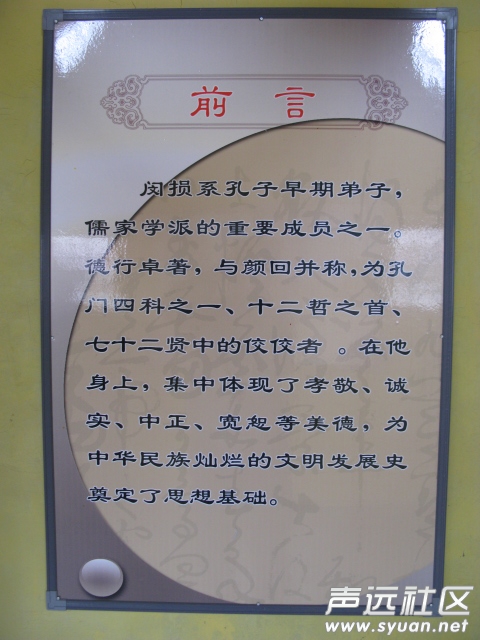 前言
闵损系孔子早期弟子，
儒家学派的重要成员之一。
德行卓著，与颜回并称，为孔
门四科之一、十二哲之首、
七十二贤中的佼佼者 。在他
身上，集中体现了孝敬、诚
实、中正、宽恕等美德，为
中华民族灿烂的文明发展史
奠定了思想基础。
声远社区
www.syuan.net